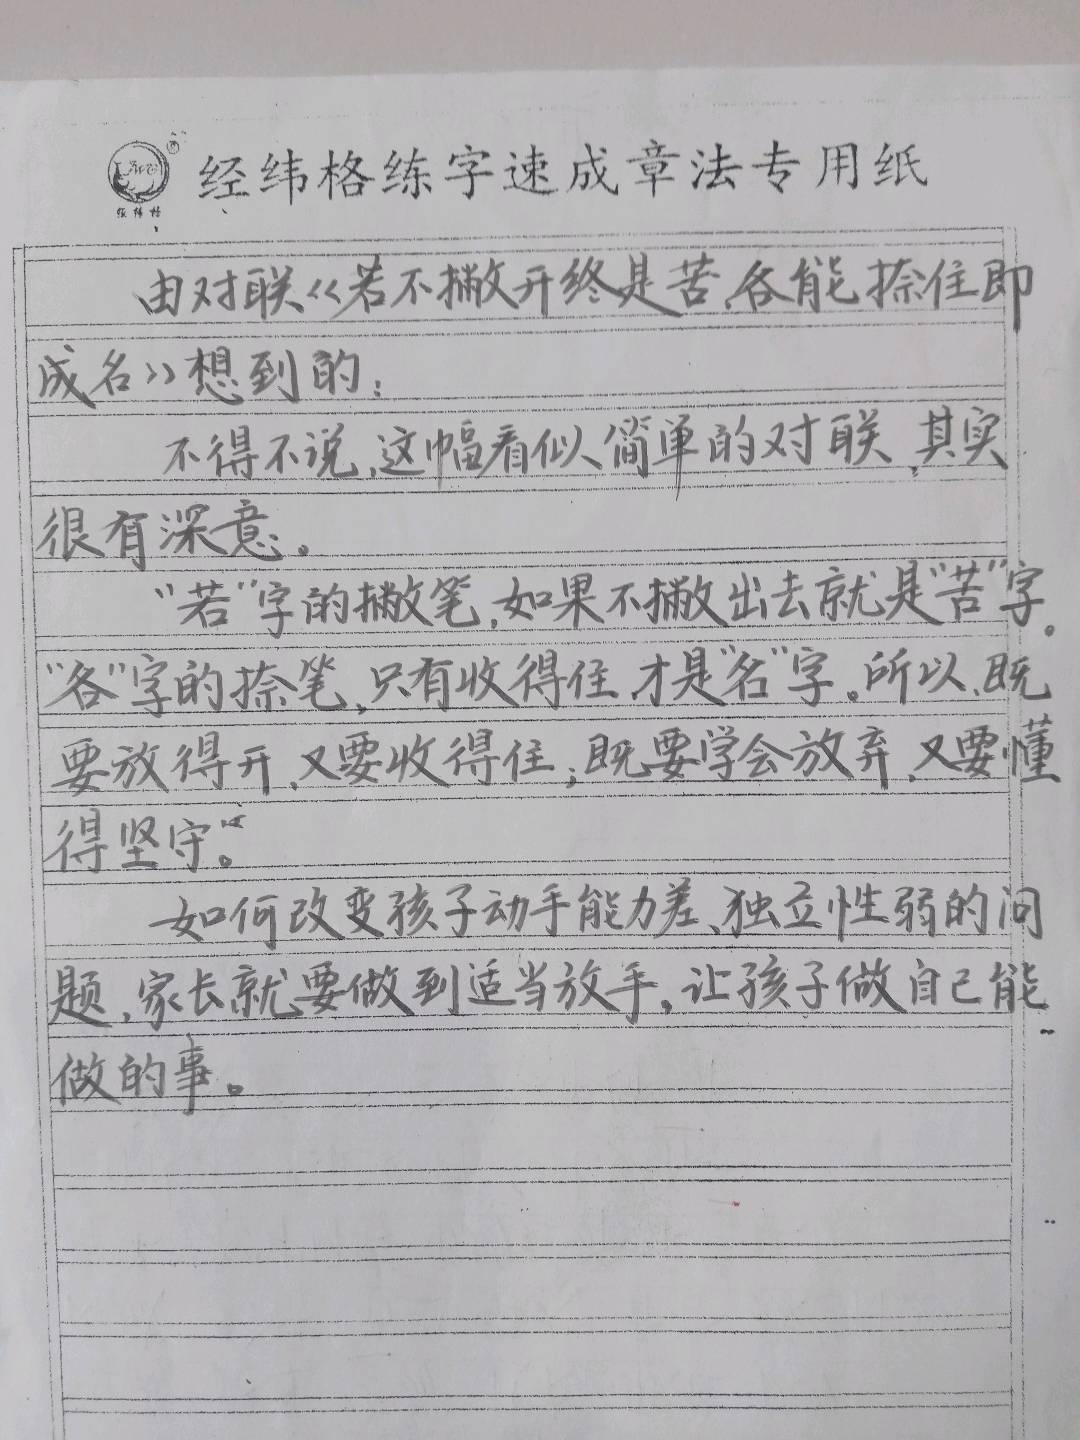 经纬格练字速成章法专用纸
经纬格
由对联《若不撇开终是苦,各能捺住即
成名》想到的:
不得不说,这幅看似简单的对联,其实
很有深意。
“若”字的撇笔,如果不撇出去就是“苦”字。
“各”字的捺笔,只有收得住,才是“名”字。所以,既
要放得开,又要收得住;既要学会放弃,又要懂
得坚守。”
如何改变孩子动手能力差、独立性弱的问
题,家长就要做到适当放手,让孩子做自己能
做的事。